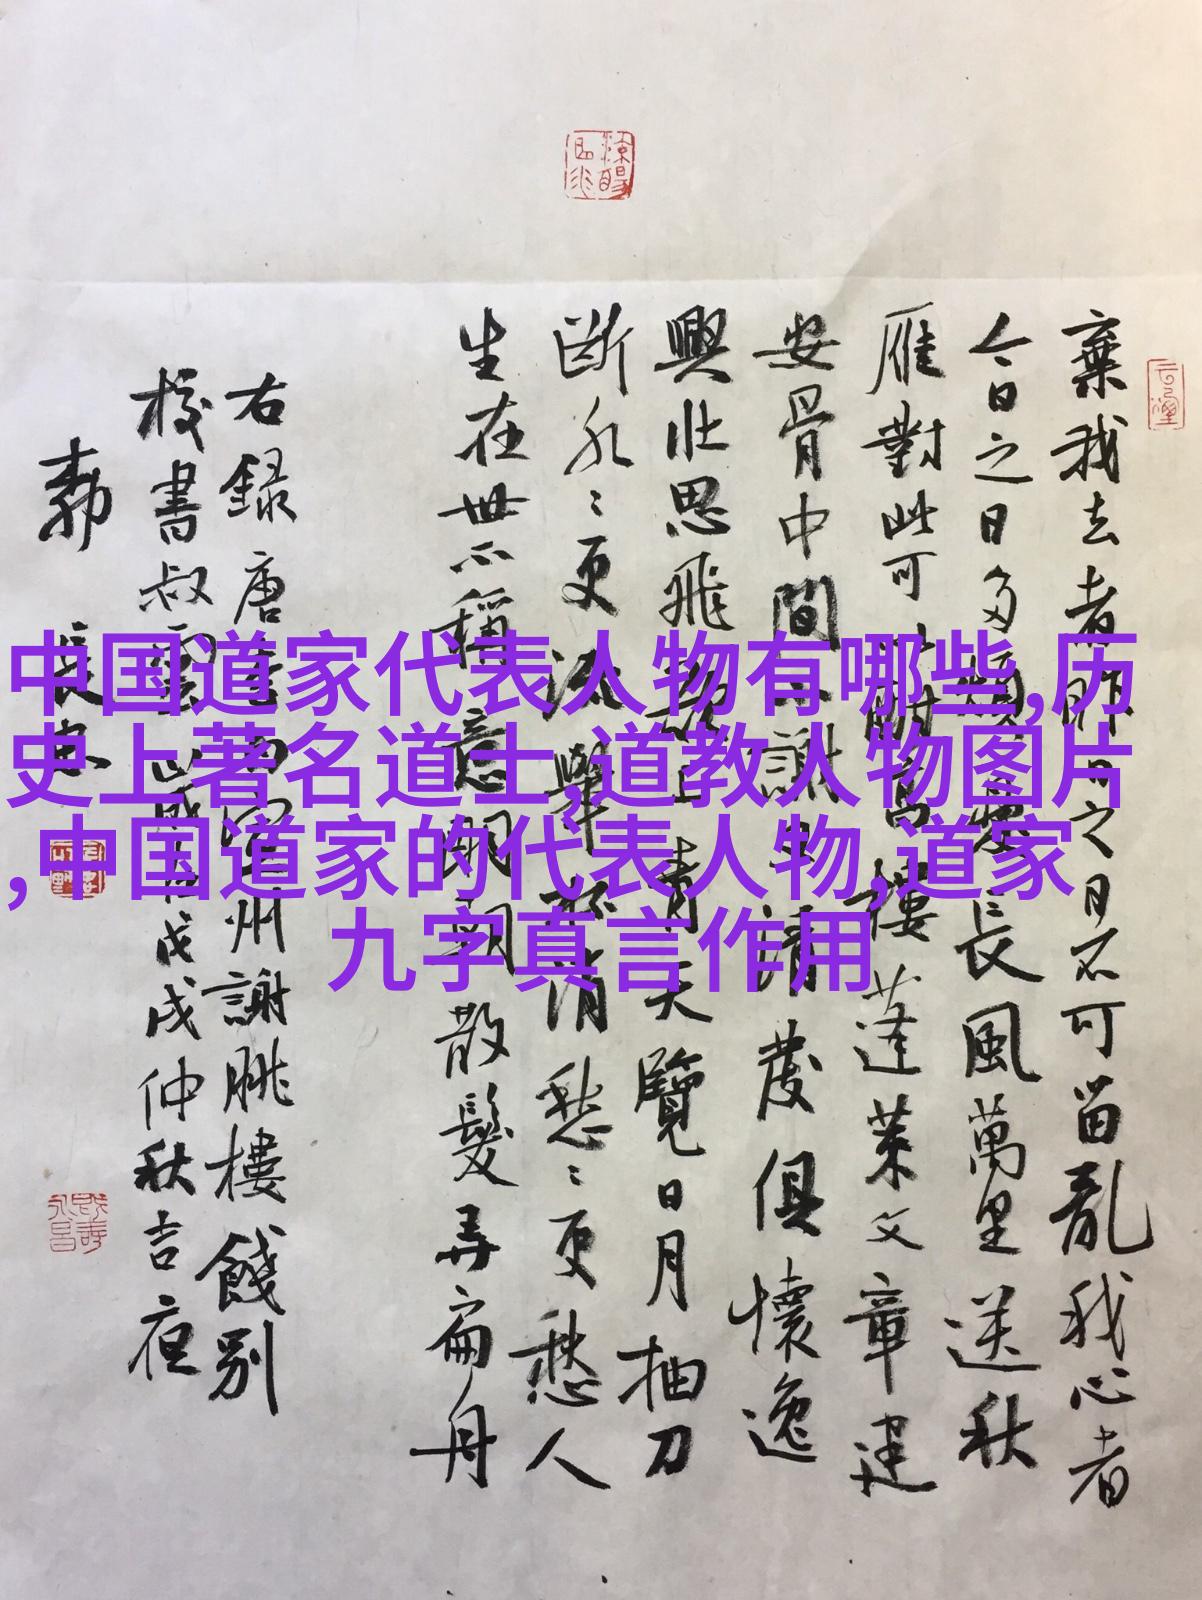 中国道家代表人物有哪些,历
史上著名道士,道教人物图片
,中国道家的代表人物,道家
九字真言作用
棄我去者昨日之日不可留亂我心者
今日之日多煩憂長風萬里送秋
雁對此可以酣高樓蓬萊文章建
安骨中間小謝又清發俱懷逸
興壯思飛欲上青天覽日月抽刀
斷水〻更流舉杯消愁〻更愁人
生在世不稱意明朝散髮弄扁舟
右錄唐李白宣州謝朓樓餞別
校書叔雲 歲在戊戌仲秋吉夜
長忠